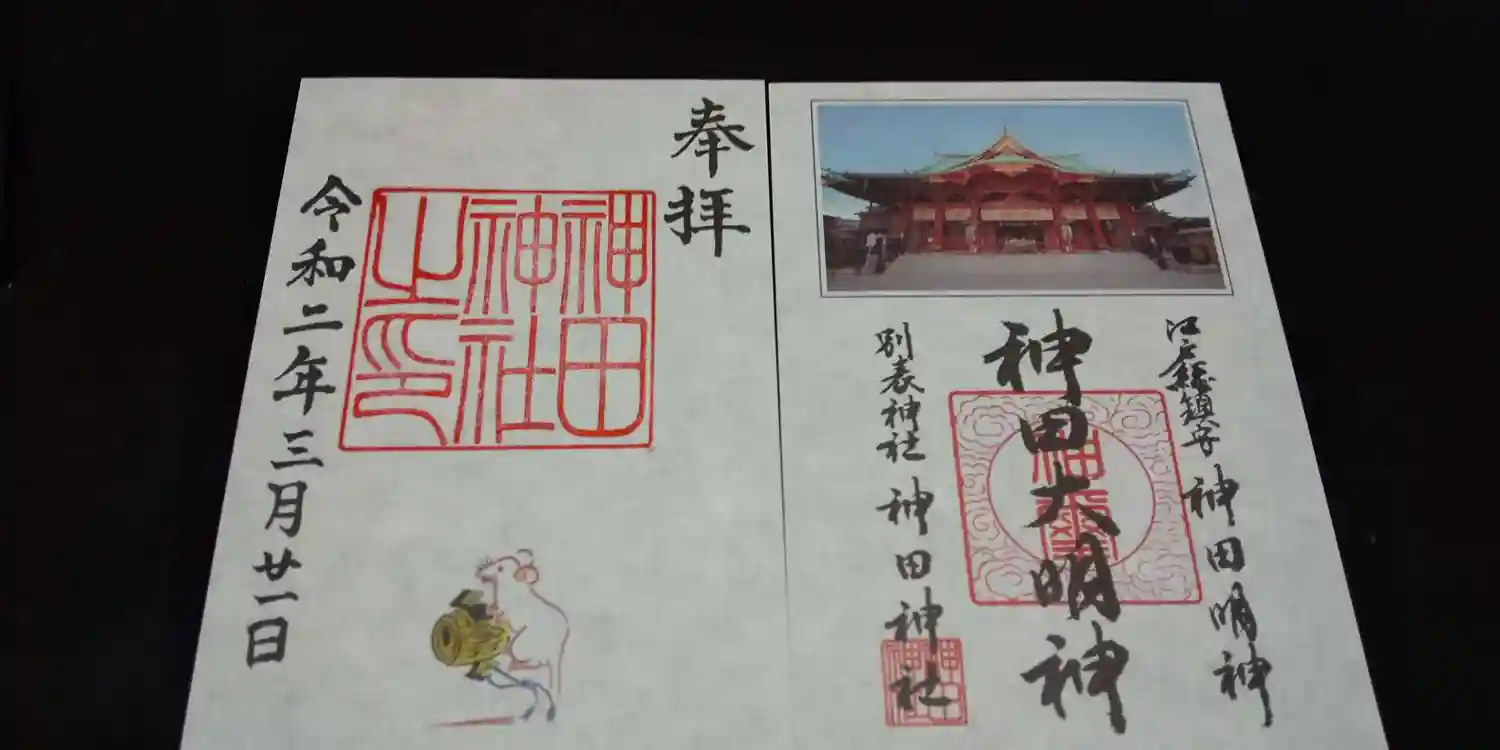 江戸総鎮守 神田明神
神田大明神
別表神社 神田神社
神田神社
奉拝
神田神社之印
令和二年三月廿一日